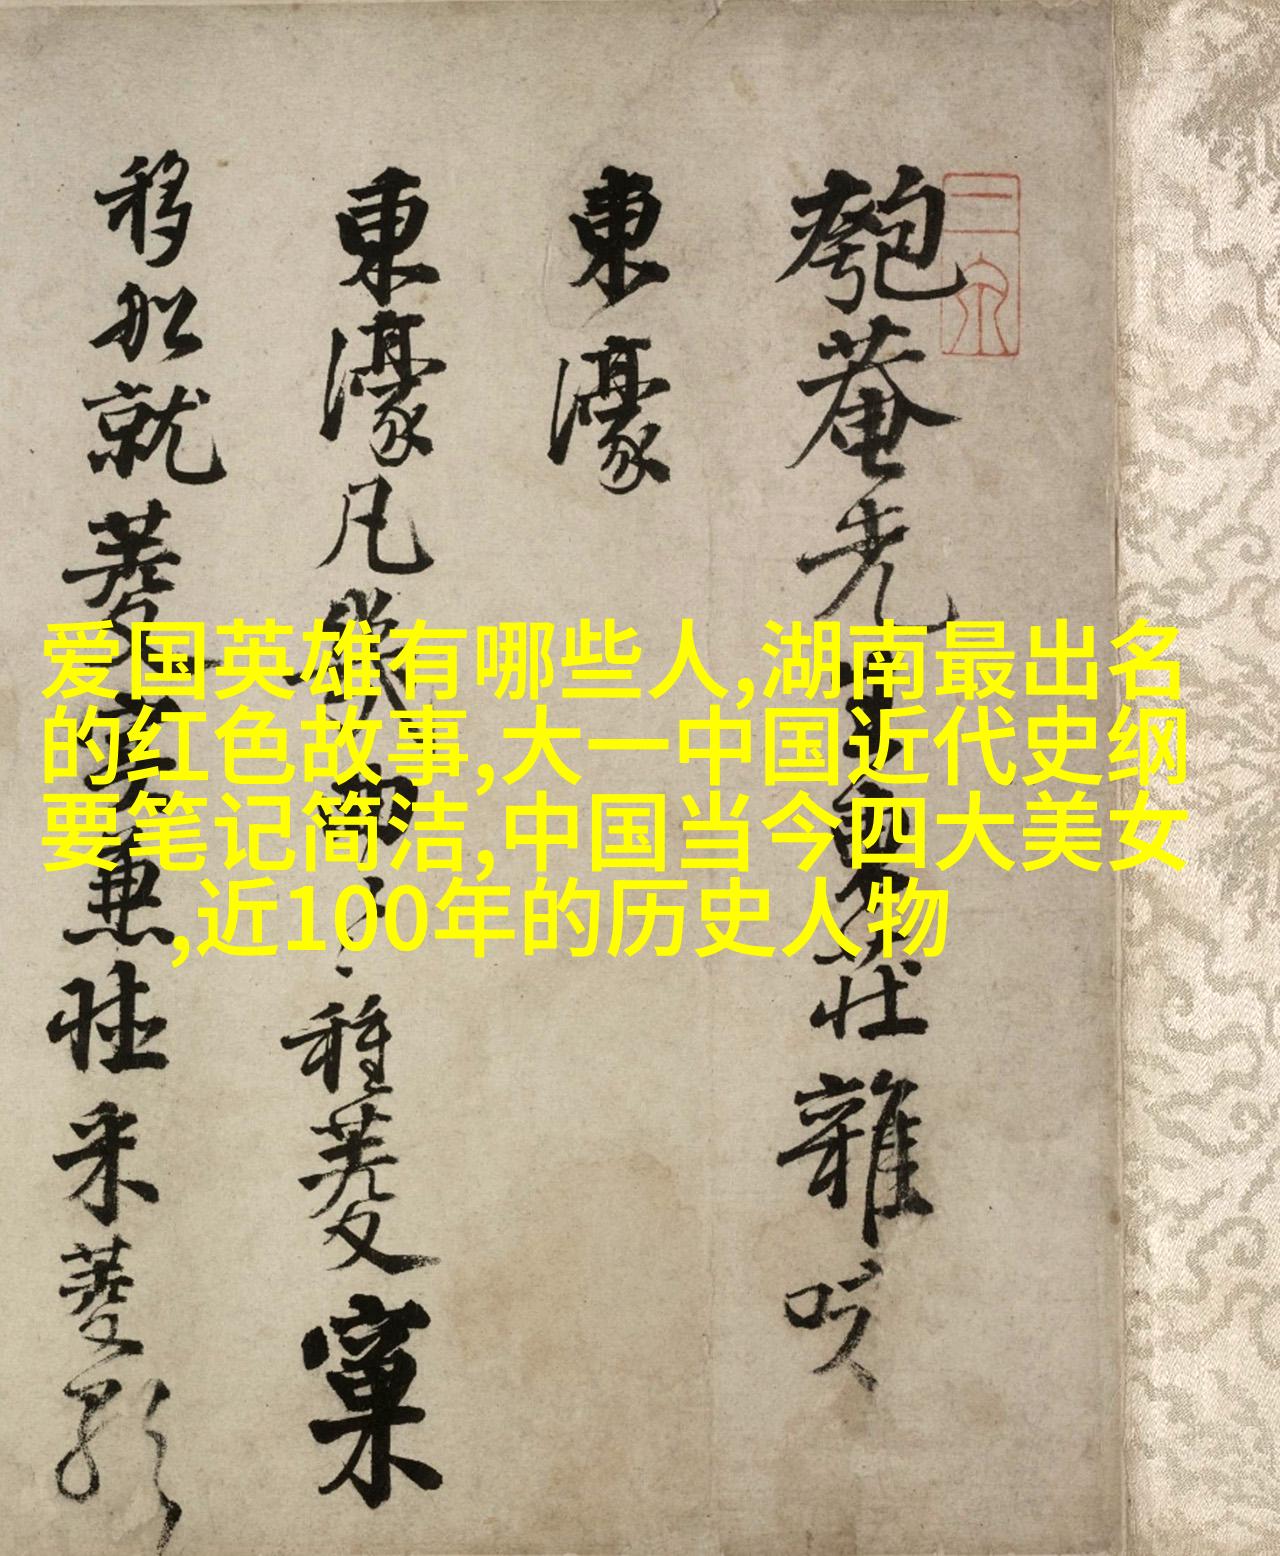 匏菴先生莊雜咏
東濠
東濠凡種菱窠
移船就菱采菱
爱国英雄有哪些人,湖南最出名
的红色故事,大一中国近代史纲
要笔记简洁,中国当今四大美女
,近100年的历史人物